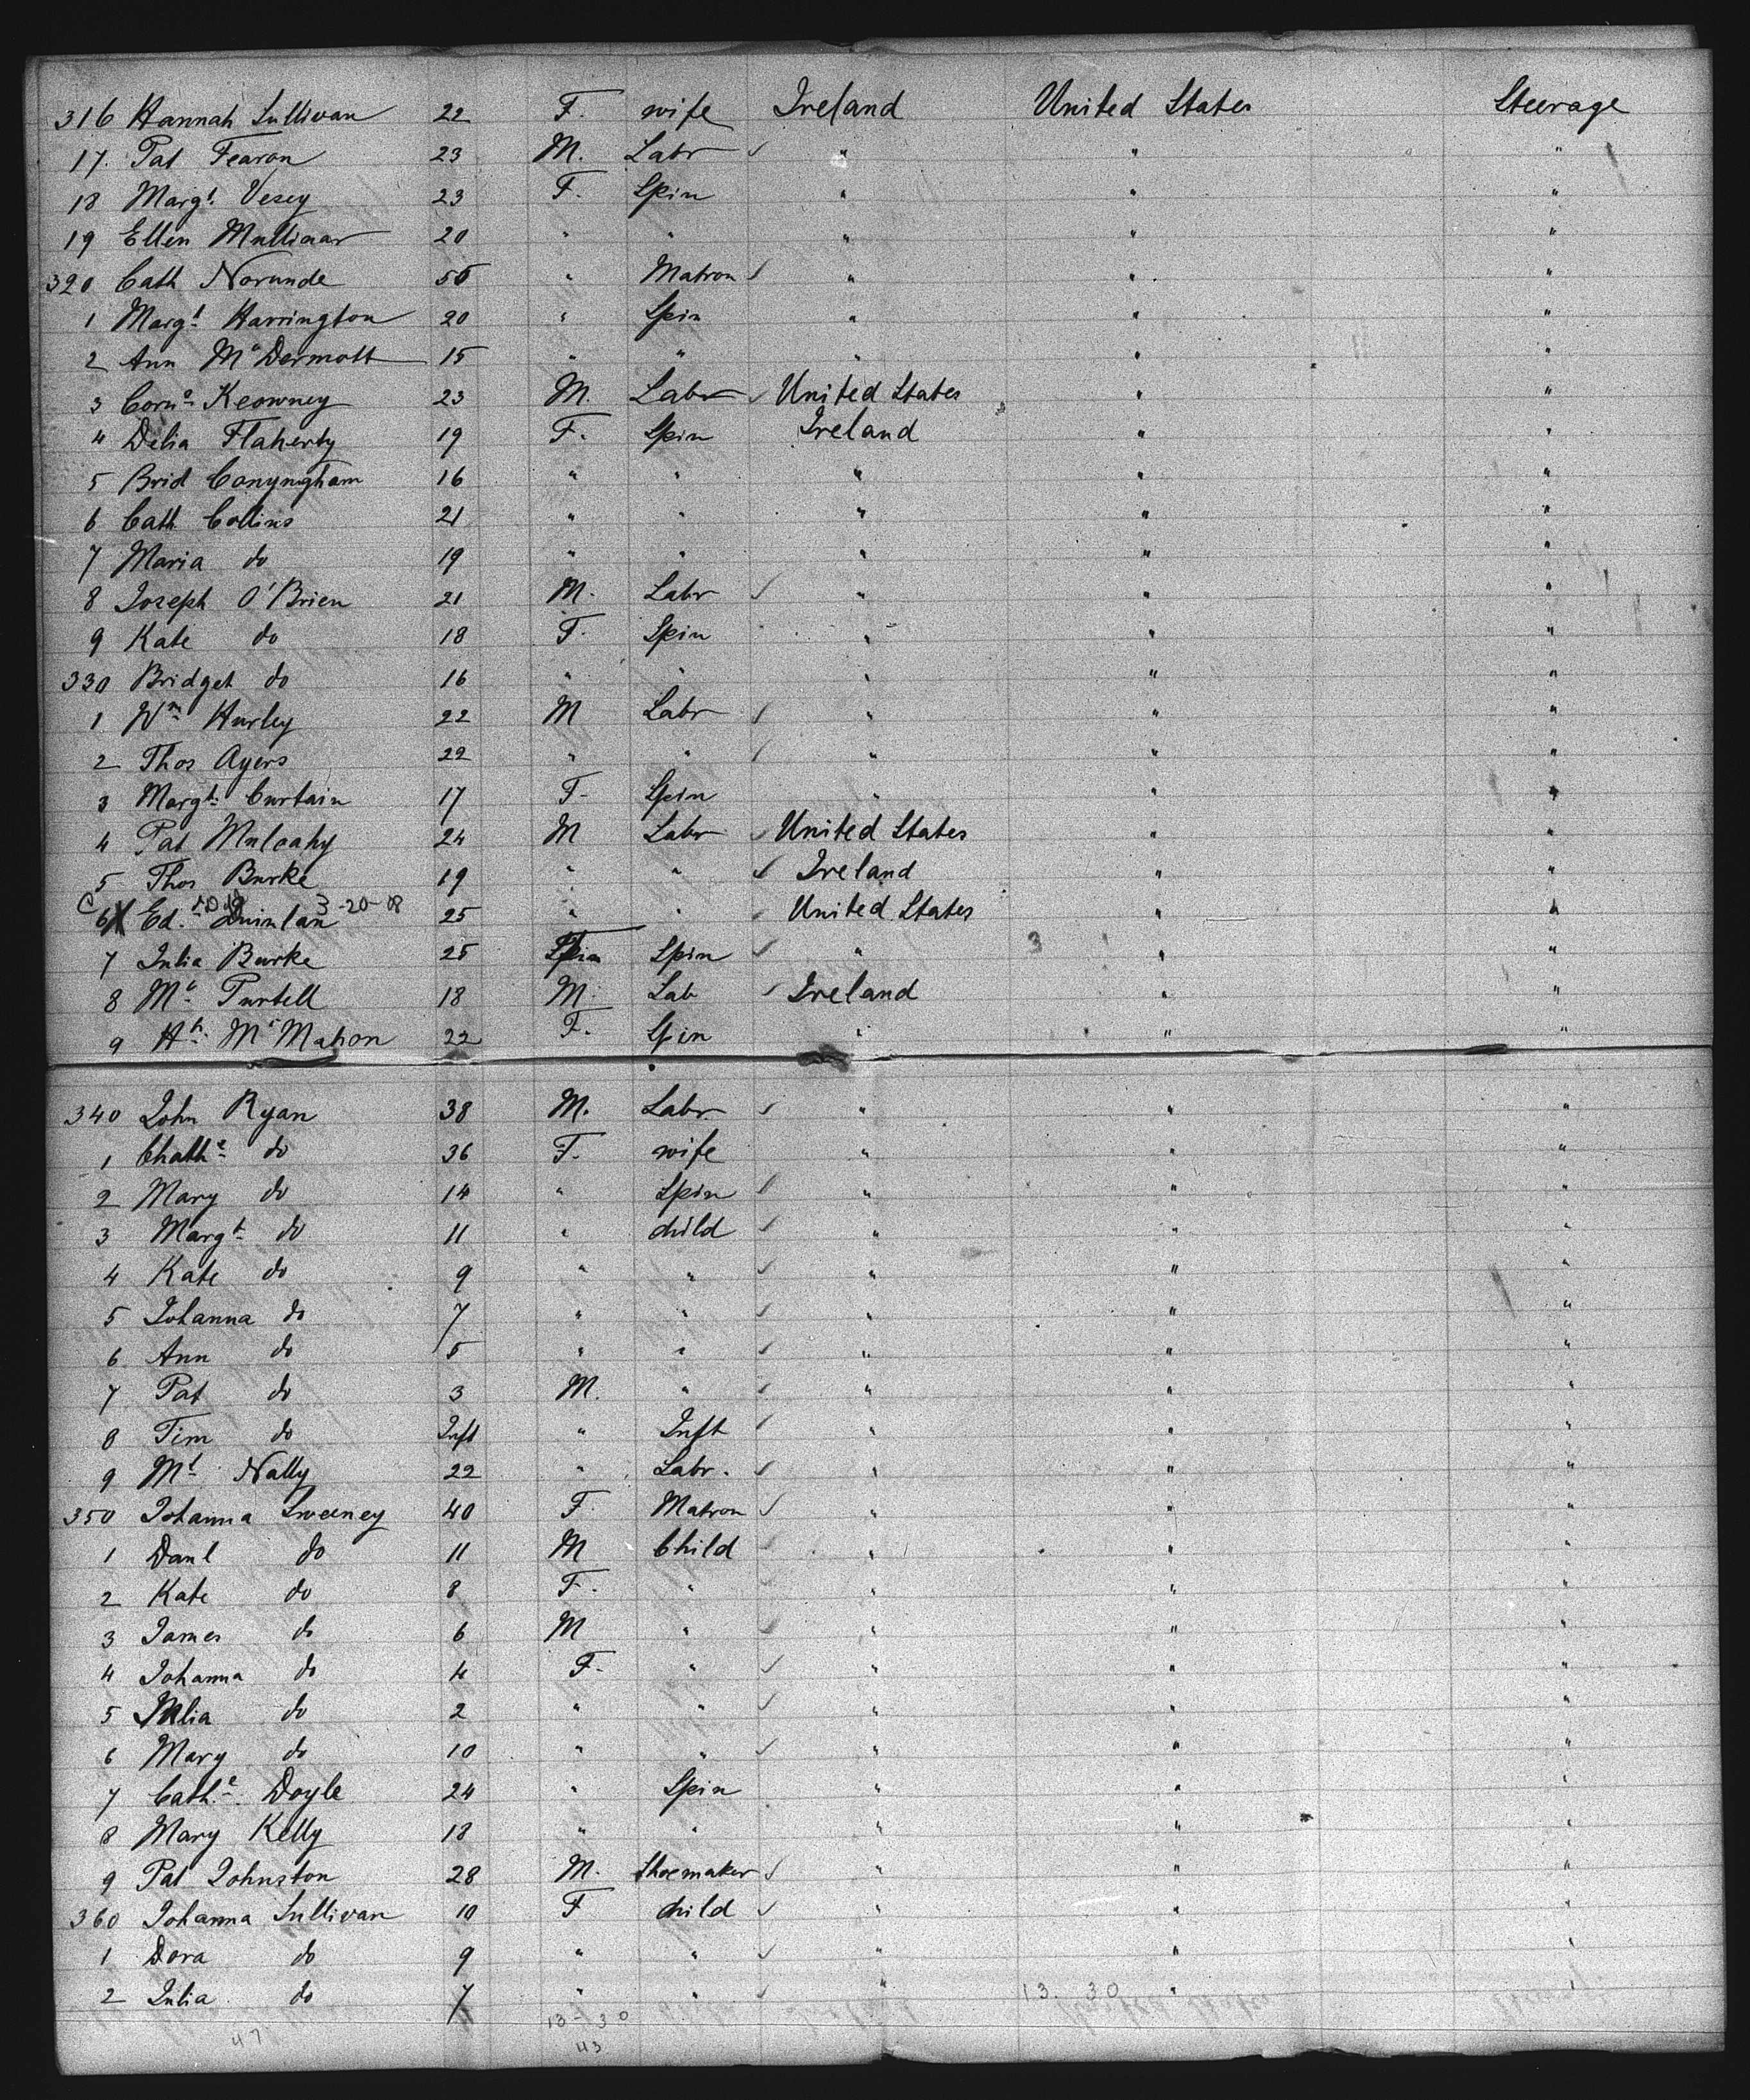 316 Hannah Sullivan 22 F. wife Ireland United States Steerage
17. Pat Fearon 23 M. Labr ✓ " " "
18 Margt. Vesey 23 F. Spin " " "
19 Ellen Mullinar 20 " " " " "
320 Cath Norunde 50 " Matron ✓ " " "
1 Margt Harrington 20 " Spin " " "
2 Ann McDermott 15 " " " " "
3 Corns Keowney 23 M. Labr ✓ United States " "
4 Delia Flaherty 19 F. Spin Ireland " "
5 Brid Conyngham 16 " " " " "
6 Cath Collins 21 " " " " "
7 Maria do 19 " " " " "
8 Joseph O'Brien 21 M. Labr ✓ " " "
9 Kate do 18 F. Spin " " "
330 Bridget do 16 " " " " "
1 Wm Hurley 22 M Labr ✓ " " "
2 Thos Ayers 22 " " ✓ " " "
3 Margt. Curtain 17 F- Spin " " "
4 Pat Mulcahy 24 M Labr ✓ United States " "
5 Thos Burke 19 " " ✓ Ireland " "
C 3-20-08
6 X Ed. Quinlan 25 " " ✓ United States " "
7 Julia Burke 25 F Spin ✓ " 3 " "
8 Ml Purtell 18 M. Lab ✓ Ireland " "
9 Hh. McMahon 22 F. Spin " " "
340 John Ryan 38 M. Labr ✓ " " "
1 Chathe do 36 F. wife " " "
2 Mary do 14 " Spin ✓ " " "
3 Margt do 11 " child ✓ " " "
4 Kate do 9 " " ✓ " " "
5 Johanna do 7 " " ✓ " " "
6 Ann do 5 " " ✓ " " "
7 Pat do 3 M. " ✓ " " "
8 Tim do Inft " Inft ✓ " " "
9 Ml Nally 22 " Labr. ✓ " " "
350 Johanna Sweeney 40 F. Matron ✓ " " "
1 Danl do 11 M Child ✓ " " "
2 Kate do 8 F. " ✓ " " "
3 James do 6 M " ✓ " " "
4 Johanna do 4 F. " ✓ " " "
5 Julia do 2 " " ✓ " " "
6 Mary do 10 " " ✓ " " "
7 Cathe. Doyle 24 " Spin " " "
8 Mary Kelly 18 " " " " "
9 Pat Johnston 28 M. Shoemaker ✓ " " "
360 Johanna Sullivan 10 F child ✓ " " "
1 Dora do 9 " " ✓ " " "
2 Julia do 7 " " ✓ " 13. 30 " "
13-30
47 43